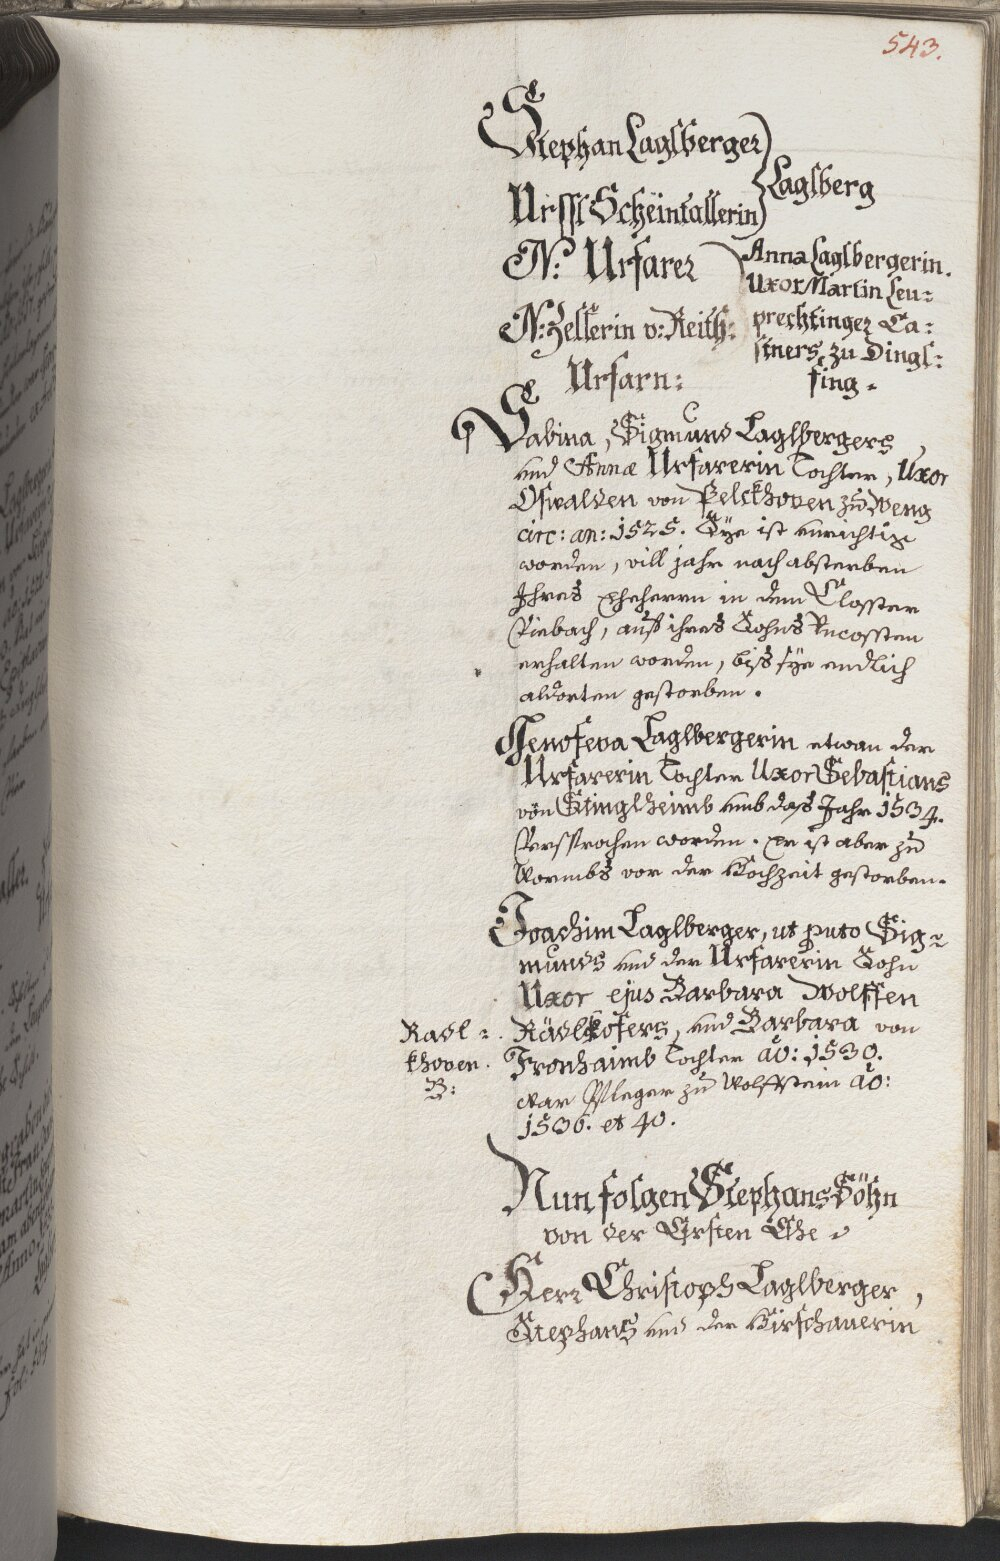 543.
Stephan Laglberger
Urssl Scheintallerin
Laglberg
N: Urfarer
N: Zellerin v: Reith:
Urfarn:
Anna Laglbergerin.
Uxor Martin Leu=
prechtinger Ca=
stners zu Dingl=
fing.
Sabina, Sigmund Laglbergers
und Annæ Urfarerin Tochter, Uxor
Oswalden von Pelckhoven zu Weng
circ: an: 1525. Sÿe ist unrichtig
worden, vill jahr nach absterben
Ihres Eheherrn in dem Closster
Viebach, auß ihres Sohns Uncossten
erhalten worden, biß sÿe endlich
aldorten gestorben.
Genofeva Laglbergerin etwan der
Urfarerin Tochter Uxor Sebastians
von Stinglheimb umb daß Jahr 1534.
Versprochen worden. Er ist aber zu
Wormbs vor der Hochzeit gestorben.
Joachim Laglberger, ut puto Sig=
munds und der Urfarerin Sohn
Uxor ejus Barbara Wolffen
Radl=
khoven.
B:
Rädlkofers, und Barbara von
Fronhaimb Tochter aō: 1530.
war Pfleger zu Wolffstein aō:
1536. et 40.
Nun folgen Stephans Söhn
von der Ersten Ehe
Herr Christoph Laglberger,
Stephans und der Hirschauerin